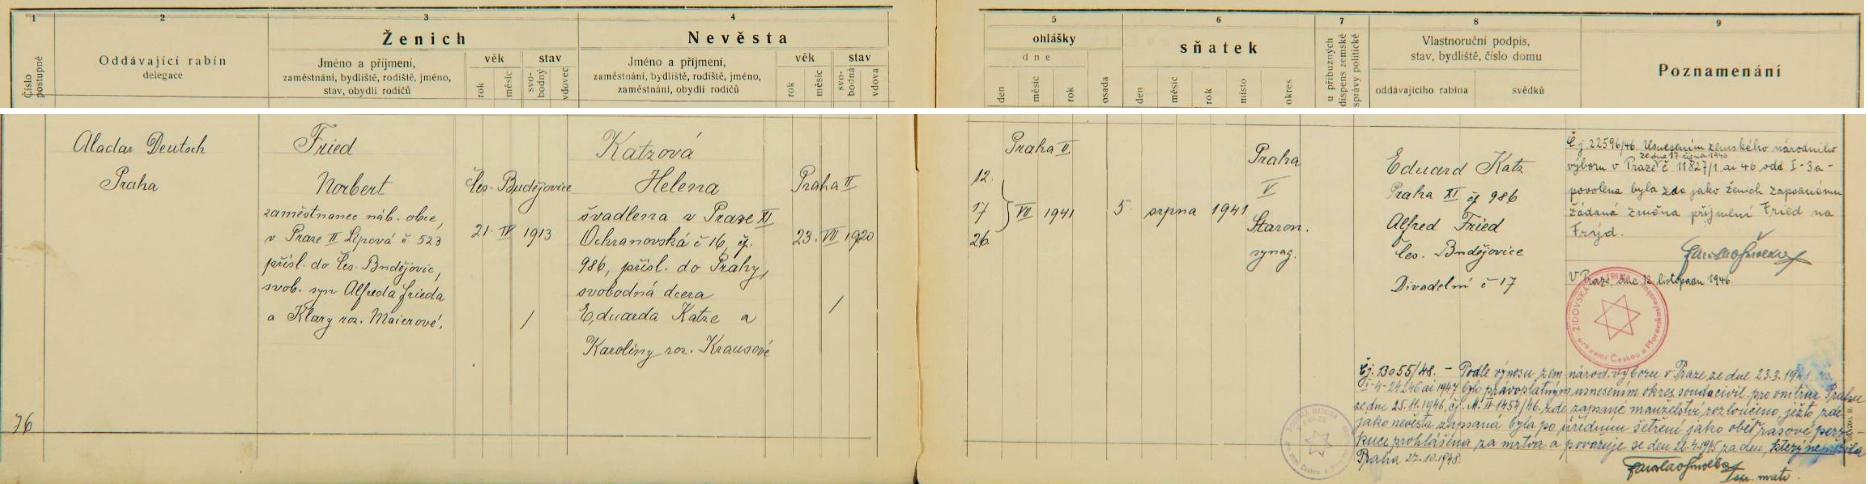 1 2 3 4 5 6 7 8 9
Číslo postupné
Oddávající rabín
delegace
Ženich
Jméno a příjmení,
zaměstnání, bydliště, rodiště, jméno,
stav, obydlí rodičů
věk
rok
měsíc
stav
svobodný
vdovec
Nevěsta
Jméno a příjmení,
zaměstnání, bydliště, rodiště, jméno,
zaměstnání, obydlí rodičů
věk
rok
měsíc
stav
svobodná
vdova
ohlášky
dne
den
měsíc
rok
osada
sňatek
den
měsíc
rok
místo
okres
u příbuzných
dispens zemské
správy politické
Vlastnoruční podpis,
stav, bydliště, číslo domu
oddávajícího rabína
svědků
Poznamenání
76
Aladar Deutsch
Praha
Fried
Norbert
zaměstnanec náb. obce,
v Praze II Lípová č 523
přísl. do Čes. Budějovic,
svob. syn Alfreda Frieda
a Klary roz. Maierové.
Čes. Budějovice
21. IV 1913
/
Katzová
Helena
švadlena v Praze XI
Ochranovská č 16, čp.
986, přísl. do Prahy,
svobodná dcera
Eduarda Katze a
Karolíny roz. Krausové
Praha II
23. VII 1920
/
Praha II.
12.
17
26.
VII 1941
5. srpna 1941
Praha
V
Staron.
synag.
Eduard Katz
Praha XI čp 986
Alfred Fried
Čes. Budějovice
Divadelní č 17
Čj. 22596/46. Usnesením zemského národního
ze dne 17. října 1946
výboru v Praze č 11827/1 ai 46 odd I-3a-
povolena byla zde jako ženich zapsanému
žádaná změna příjmení Fried na
Frýd.
V Praze, dne 12. listopadu 1946.
Čj. 13055/48. – Podle výnosu zem. národ. výboru v Praze ze dne 23.3.
bylo právoplatným usnesením okres. soudu civil. pro vnitřní Prahu
ze dne 25.11.1946, čj. zde zapsané manželství rozloučeno, ježto zde
jako nevěsta zapsaná byla po úředním šetření jako oběť rasové perse-
kuce prohlášena za mrtvu a považuje se den za den,
Praha 27.10.1948.